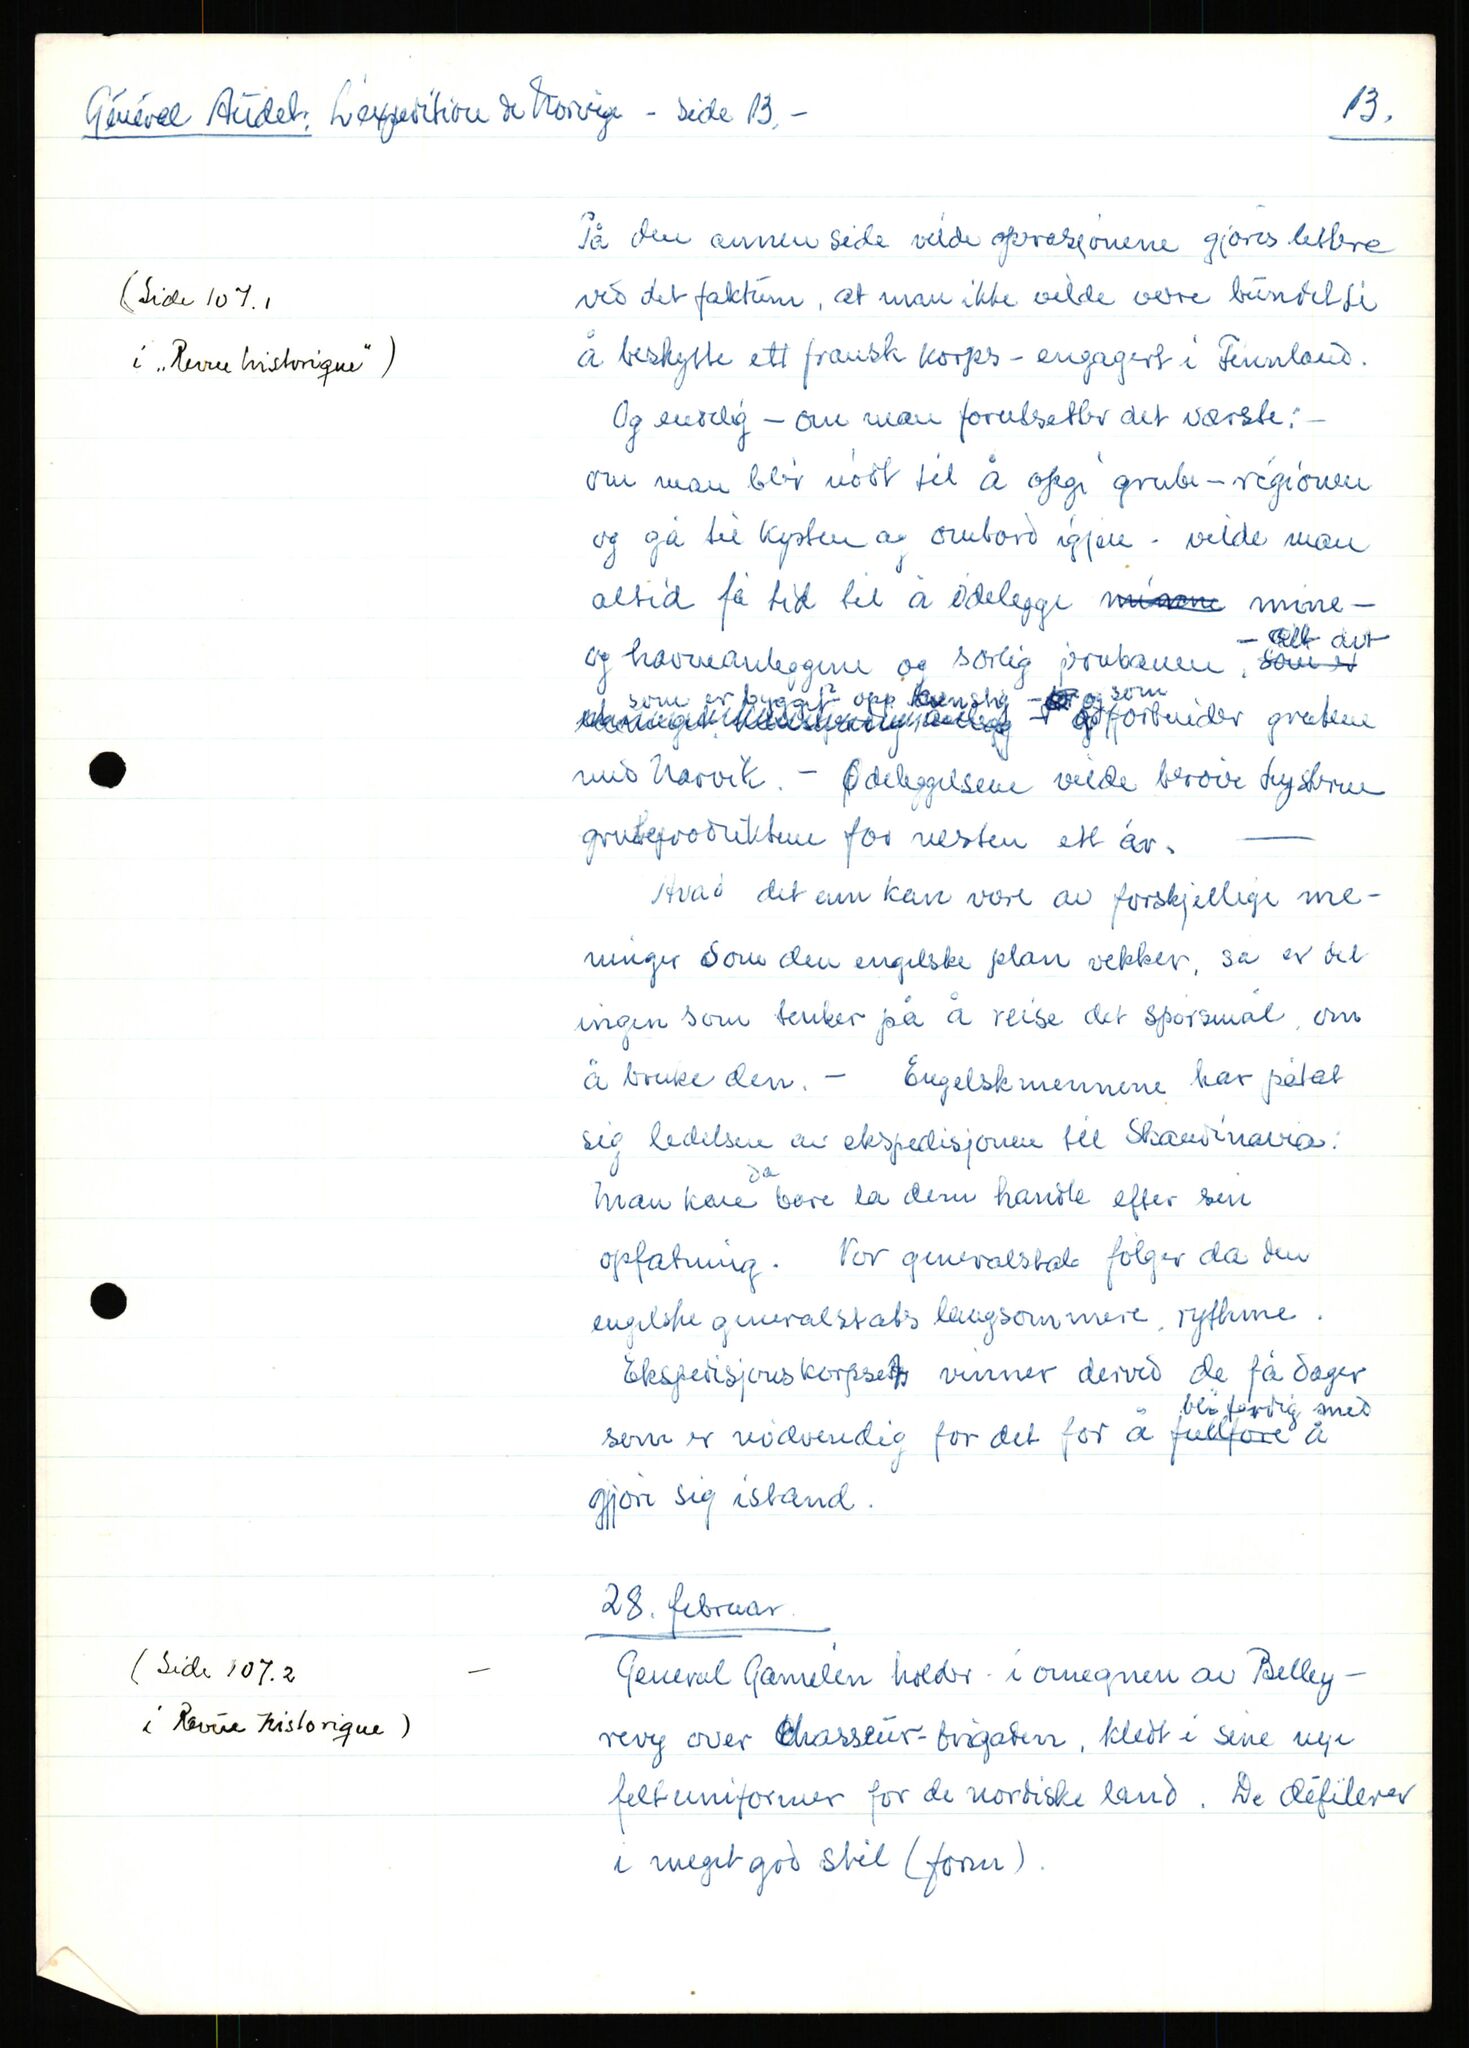 Général Audet: L'expedition de Norvège - side 13. -
13.
På den annen side vilde operasjonene gjøres lettere
(Side 107.1
ved det faktum, at man ikke vilde være bundet til
i „Revue historique")
å beskytte ett fransk korps - engagert i Finnland.
Og endelig - om man forutsetter det værste: -
om man blir nødt til å opgi grube-regionen
og gå til kysten og ombord igjen - vilde man
altid få tid til å ødelegge minene mine-
og havneanleggene og særlig jernbanen, som er - alt det
som er bygget opp kunstig - og som
forbinder grubene
med Narvik. - Ødeleggelsene vilde berøve tyskerne
grubeproduktene for nesten ett år. -
Hvad det enn kan være av forskjellige me-
ninger som den engelske plan vekker, så er det
ingen som tenker på å reise det spørsmål, om
å bruke den. - Engelskmennene har påtat
sig ledelsen av ekspedisjonen til Skandinavia:
Man kan da bare la dem handle efter sin
opfatning. Vor generalstab følger da den
engelske generalstabs langsommere, rythme.
Ekspedisjonskorpset vinner derved de få dager
som er nødvendig for det for å fullføre bli ferdig med å
gjøre sig istand.
28. februar.
(Side 107.2 -
General Gamelin holder - i omegnen av Belley -
i Revue historique)
revy over Chasseur-brigaden, kledt i sine nye
feltuniformer for de nordiske land. De défilerer
i meget god stil (form).